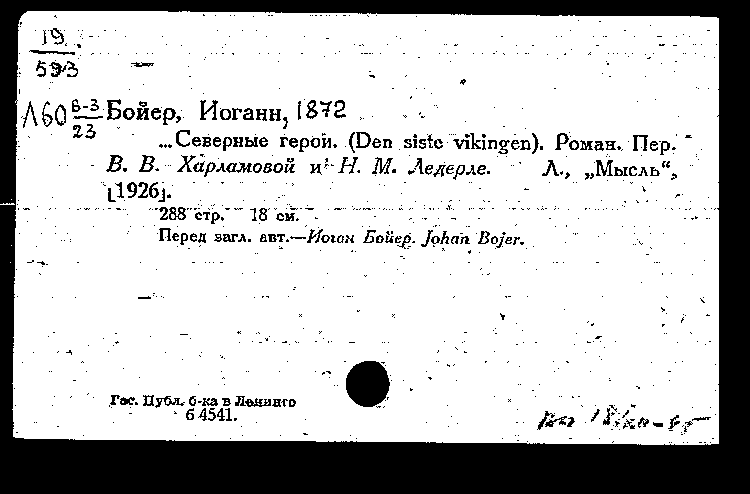 19
593
Л60 В-3
23
Бойер, Иоганн, 1872
...Северные герои. (Den siste vikingen). Роман. Пер.
В. В. Харламовой и Н. М. Ледерле. Л., „Мысль“,
[1926].
288 стр. 18 см.
Перед загл. авт.—Иоган Бойер. Johan Bojer.
Гос. Публ. б-ка в Ленинго
б 4541.